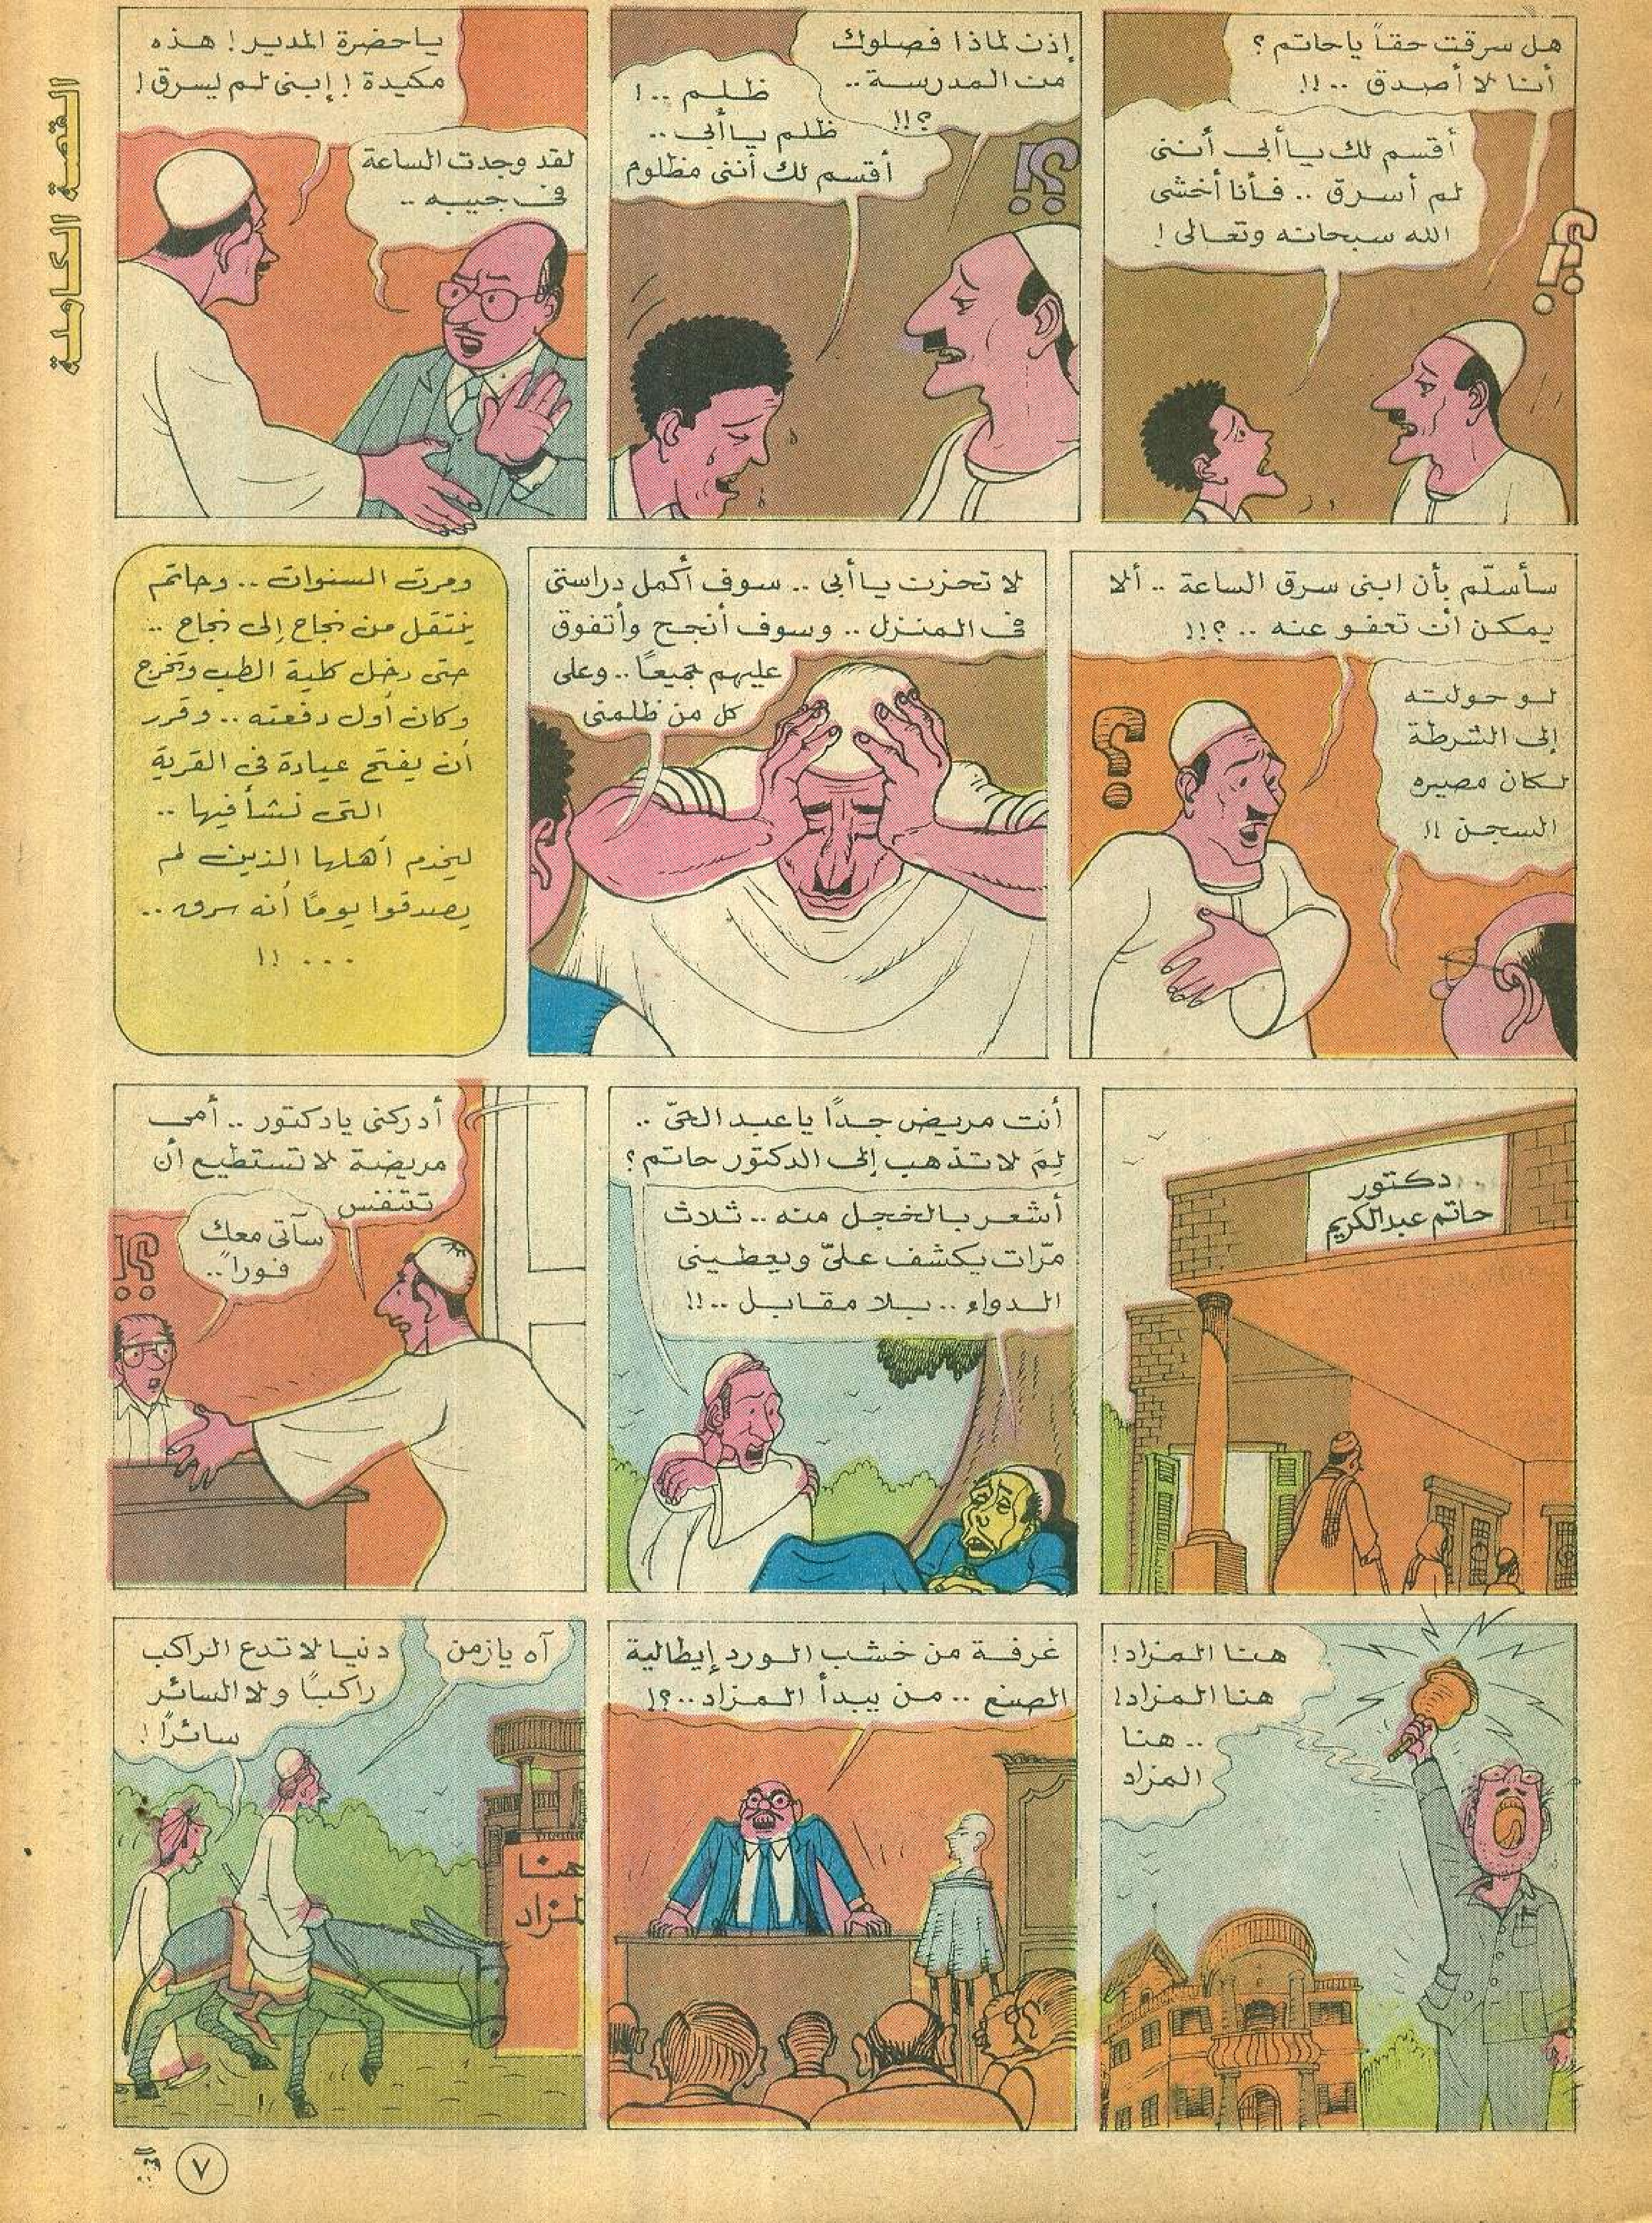 القصة الكاملة
هل سرقت حقاً ياحاتم ؟
أنا لا أصدق .. !!
أقسم لك يا أبي أننى
لم أسرق .. فأنا أخشى
الله سبحانه وتعالى !
إذن لماذا فصلوك
من المدرسة ..
؟!!
ظلم .. !
ظلم يا أبي ..
أقسم لك أننى مظلوم
ياحضرة المدير ! هذه
مكيدة ! إبنى لم يسرق !
لقد وجدت الساعة
فى جيبه ..
سأسلّم بأن ابنى سرق الساعة .. ألا
يمكن أن تعفو عنه .. ؟!!
لو حولته
إلى الشرطة
لكان مصيره
السجن !!
لا تحزن يا أبى .. سوف أكمل دراستى
فى المنزل .. وسوف أنجح وأتفوق
عليهم جميعاً .. وعلى
كل من ظلمنى
ومرت السنوات .. وحاتم
ينتقل من نجاح إلى نجاح ..
حتى دخل كلية الطب وتخرج
وكان أول دفعته .. وقرر
أن يفتح عيادة فى القرية
التى نشأ فيها ..
ليخدم أهلها الذين لم
يصدقوا يوماً أنه سرق ..
... !!
دكتور
حاتم عبدالكريم
أنت مريض جداً يا عبد الحىّ ..
لِمَ لا تذهب إلى الدكتور حاتم ؟
أشعر بالخجل منه .. ثلاث
مرّات يكشف علىّ ويعطينى
الدواء .. بلا مقابل .. !!
أدركنى يادكتور .. أمى
مريضة لا تستطيع أن
تتنفس
سآتى معك
فوراً ..
هنا المزاد !
هنا المزاد !
.. هنا
المزاد
غرفة من خشب الورد إيطالية
الصنع .. من يبدأ المزاد .. ؟!
آه يازمن
دنيا لا تدع الراكب
راكباً ولا السائر
سائراً !
هنا
المزاد
٧